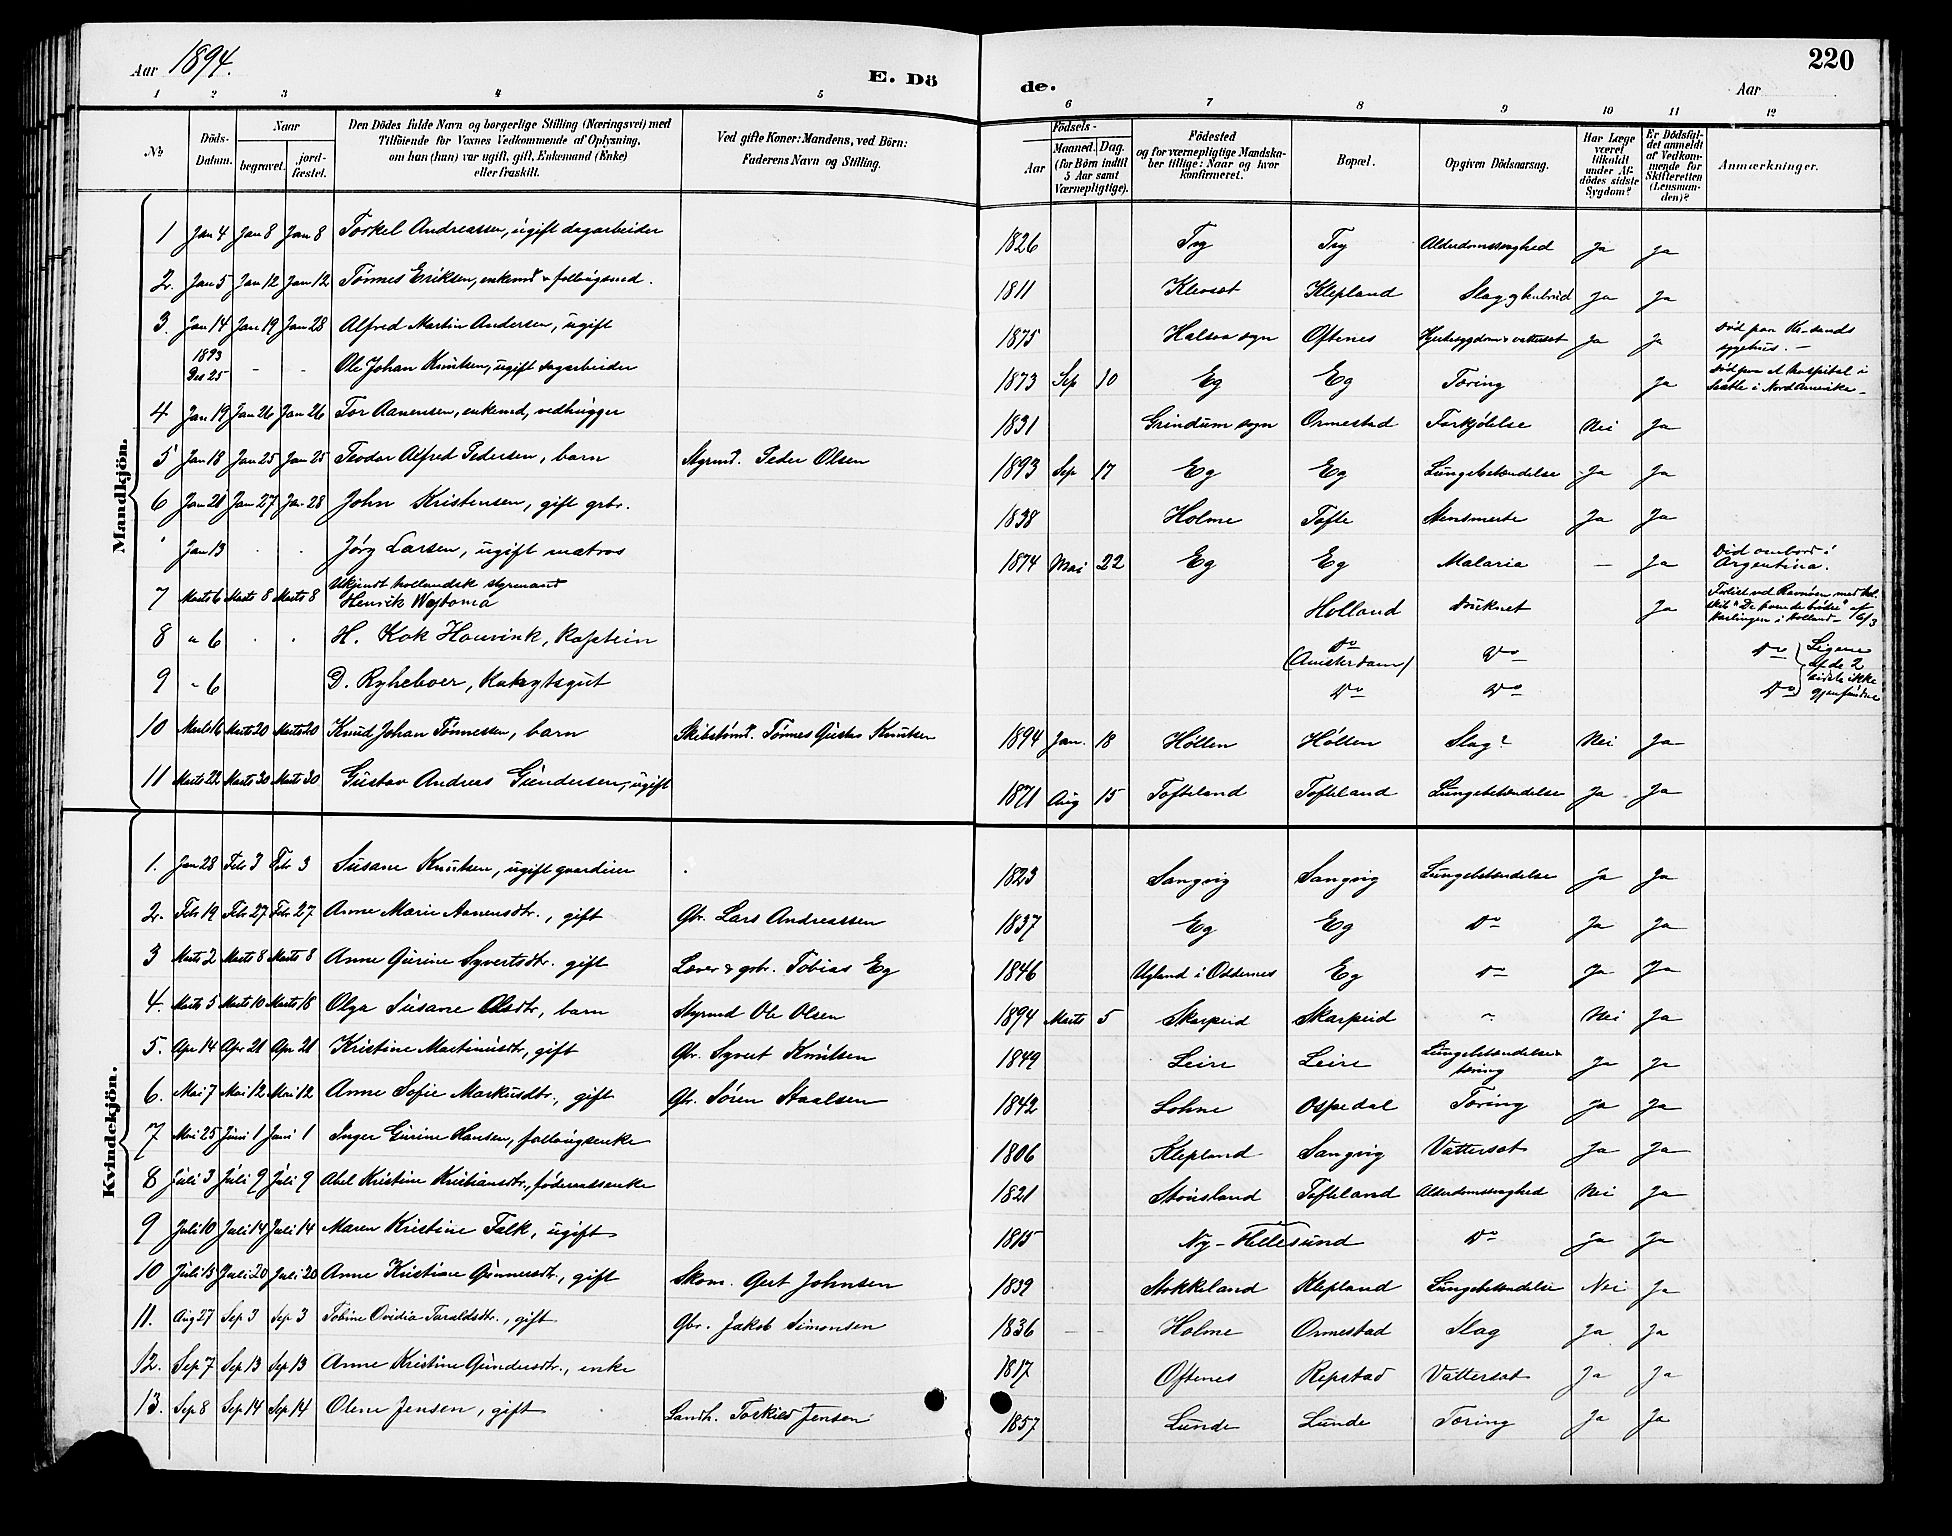 Aar 1894.
E. Döde.
Aar
220
1 2 3 4 5 6 7 8 9 10 11 12
No
Döds-Datum.
Naar
begravet.
jord-fæstet.
Den Dödes fulde Navn og borgerlige Stilling (Næringsvei) med
Tilföiende for Voxnes Vedkommende af Oplysning,
om han (hun) var ugift, gift, Enkemand (Enke)
eller fraskilt.
Ved gifte Koner: Mandens, ved Börn:
Faderens Navn og Stilling.
Födsels-
Aar
Maaned. Dag.
(for Börn indtil
5 Aar samt
Værnepligtige).
Födested
og for værnepligtige Mandskaber tillige: Naar og hvor
konfirmeret.
Bopæl.
Opgiven Dödsaarsag.
Har Læge
været
tilkaldt
under Afdödes sidste
Sygdom?
Er Dödsfaldet anmeldt
af Vedkommende for
Skifteretten
(Lensmanden)?
Anmærkninger.
Mandkjön.
1 Jan 4 Jan 8 Jan 8 Torkel Andreassen, ugift dagarbeider 1826 Try Try Alderdomssvaghed Ja Ja
2. Jan 5 Jan 12 Jan 12 Tønnes Eriksen, enkemd 1811 Klepland Slag Ja Ja
3. Jan 14 Jan 19 Jan 28 Alfred Martin Andersen, ugift 1875 Halsaa sogn Oftenes Ja Ja død paa Kr-sands sygehus. –
1893 Des 25 - - Ole Johan Knutsen, ugift dagarbeider 1873 Sep 10 Eg Eg Tæring Ja død paa et hospital i Nord Amerika –
4 Jan 19 Jan 26 Jan 26 Tor Aanensen, enkemd, vedhugger 1831 Grindum sogn Ormestad Forkjølelse Nei Ja
5 Jan 18 Jan 25 Jan 25 Teodor Alfred Pedersen, barn Styrmd. Peder Olsen 1893 Sep 17 Eg Eg Lungebetændelse Ja Ja
6 Jan 21 Jan 27 Jan 28 John Kristensen, gift grbr. 1838 Holme Tofte Ja Ja
Jan 13 Jørg Larsen, ugift matros 1874 Mai 22 Eg Eg Malaria – Ja Død ombord i Argentina.
7 Marts 6 Marts 8 Marts 8 Ukjendt hollandsk styrmand Henrik Wejtoma Holland druknet Ja Forlist ved Ravnøen med hol. skib "De tvende brødre" af Harlingen i Holland – 6/3
8 " 6 H. Kok Houvink, kaptein do (Amsterdam) do do
9 " 6 D. Ryheboer, Kahytsgut do do do
Ligene af de 2 sidste ikke gjenfundne
10 Marts 16 Marts 20 Marts 20 Knud Johan Tønnessen, barn Skibstømd. Tønnes Gustav Knutsen 1894 Jan. 18 Høllen Høllen Slag? Nei Ja
11 Marts 22 Marts 30 Marts 30 Gustav Andreas Gundersen, ugift 1871 Aug 15 Tofteland Tofteland Lungebetændelse Ja Ja
Kvindekjön.
1. Jan 28 Febr 3 Febr 3 Susane Knutsen, ugift 1823 Sangvig Sangvig Lungebetændelse Ja Ja
2. Febr 19 Febr 27 Febr 27 Anne Marie Aanensdtr., gift Gbr. Lars Andreassen 1837 Eg Eg do Ja Ja
3 Marts 2 Marts 8 Marts 8 Anne Gurine Syvertsdtr. gift Lærer & grbr. Tobias Eg 1846 Ugland i Oddernes Eg do Ja Ja
4. Marts 5 Marts 10 Marts 18 Olga Susane Olsdtr, barn Styrmd Ole Olsen 1894 Marts 5 Skarpeid Skarpeid – Nei Ja
5. Apr 14 Apr 21 Apr 21 Kristine Martinusdtr, gift Gbr. Syvert Knutsen 1849 Leire Leire Lungebetændelse & tæring Ja Ja
6. Mai 7 Mai 12 Mai 12 Anne Sofie Markusdtr., gift Gbr. Søren Staalsen 1842 Lohne Ospedal Tæring Ja Ja
7 Mai 25 Juni 1 Juni 1 Inger Gurine Hansen, 1806 Klepland Sangvig Vattersot Ja Ja
8 Juli 3 Juli 9 Juli 9 Abel Kristine Kristiansdtr., føderaadsenke 1821 Stousland Tofteland Alderdomssvaghed Nei Ja
9 Juli 10 Juli 14 Juli 14 Maren Kristine Falk, ugift 1815 Ny-Hellesund do Ja Ja
10 Juli 13 Juli 20 Juli 20 Anne Kristiane Gunnersdtr., gift Skom. Gert Johnsen 1839 Stokkeland Klepland Lungebetændelse Nei Ja
11. Aug 27 Sep 3 Sep 3 Tobine Ovidia Taraldsdtr., gift Gbr. Jakob Simonsen 1836 – – Holme Ormestad Slag Ja Ja
12. Sep 7 Sep 13 Sep 13 Anne Kristine Gundersdtr., enke 1817 Oftenes Repstad Vattersot Ja Ja
13. Sep 8 Sep 14 Sep 14 Olene Jensen, gift Landh. Torkild Jensen 1857 Lunde Lunde Tæring Ja Ja